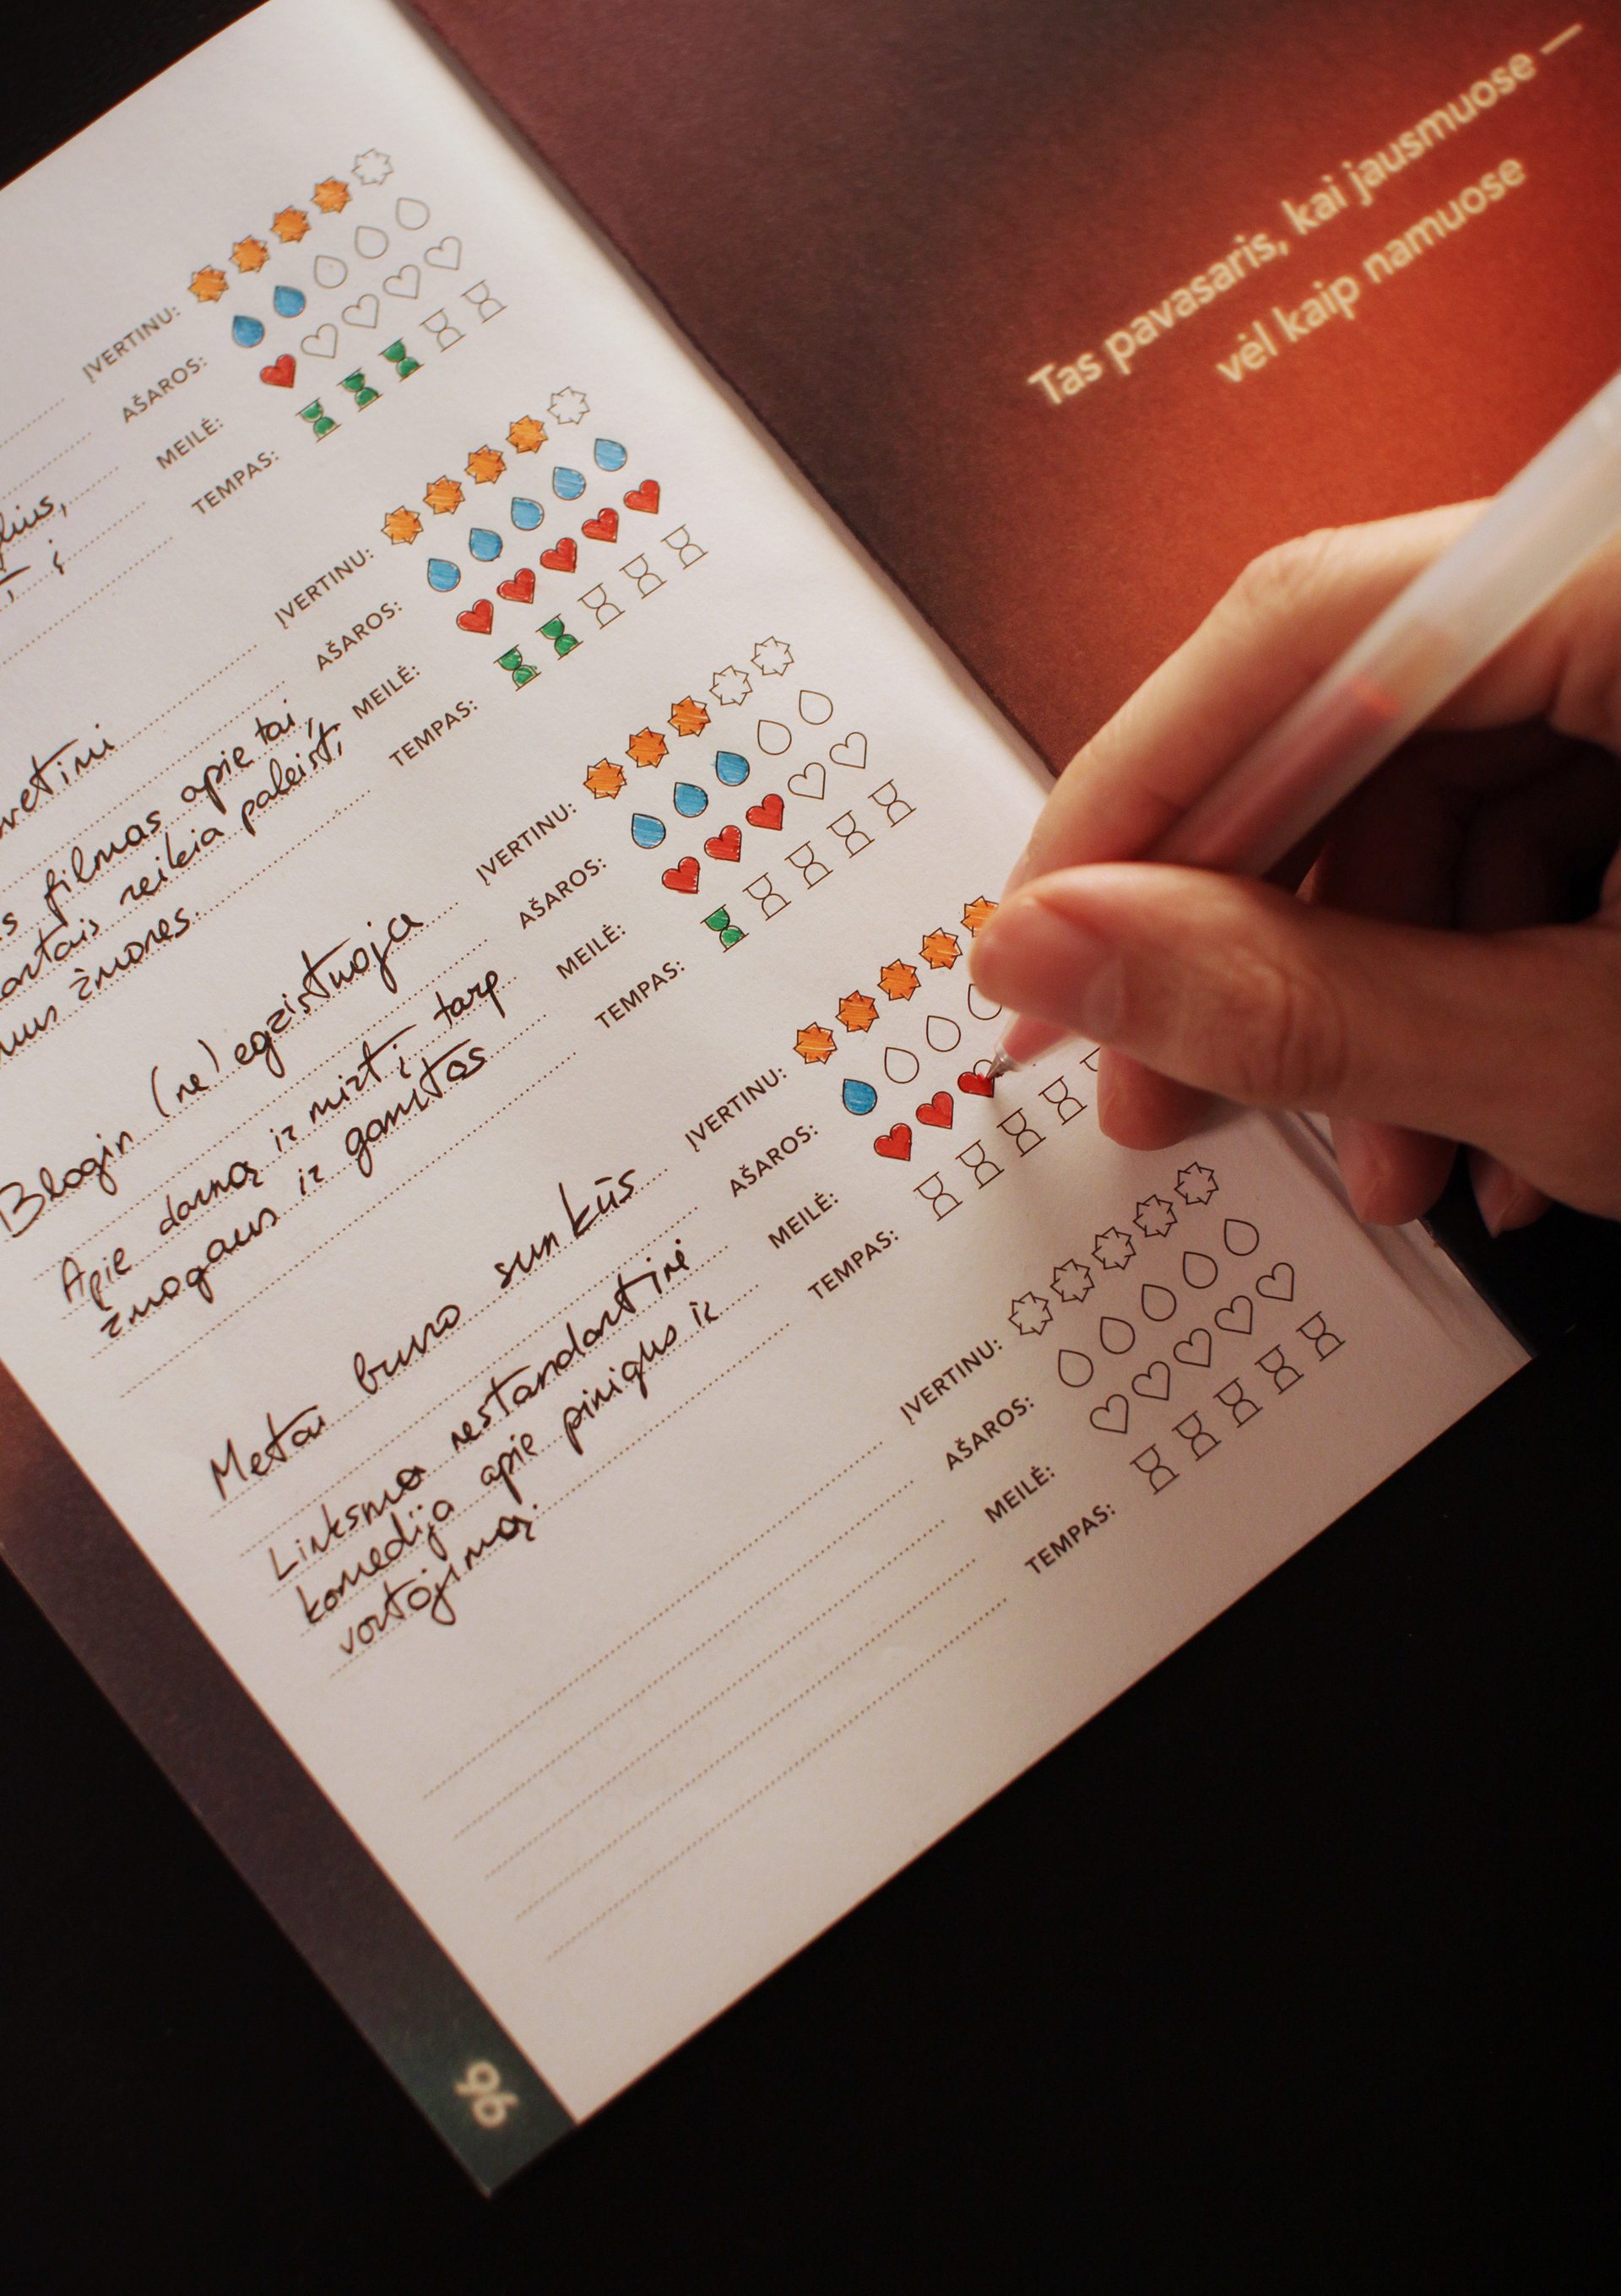 ĮVERTINU:
AŠAROS:
MEILĖ:
TEMPAS:
ĮVERTINU:
filmas apie tai, AŠAROS:
reikia paleisti MEILĖ:
žmones. TEMPAS:
Blogin (ne) egzistuoja ĮVERTINU:
Apie darną ir mirtį tarp AŠAROS:
žmogaus ir gamtos MEILĖ:
TEMPAS:
Metai buvo sunkūs ĮVERTINU:
Linksma nestandartinė AŠAROS:
komedija apie pinigus ir MEILĖ:
vartojimą. TEMPAS:
ĮVERTINU:
AŠAROS:
MEILĖ:
TEMPAS:
96
Tas pavasaris, kai jausmuose —
vėl kaip namuose